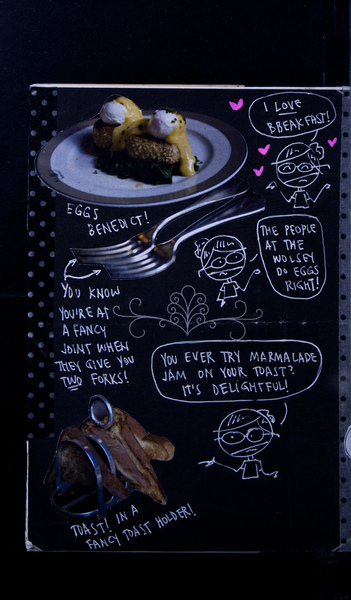 I LOVE
BBEAKFAST!
EGGS
BENEDICT!
THE PEOPLE
AT THE
WOLSEY
DO EGGS
RIGHT!
YOU KNOW
YOU'RE AT
A FANCY
JOINT WHEN
THEY GIVE YOU
TWO FORKS!
YOU EVER TRY MARMALADE
JAM ON YOUR TOAST?
IT'S DELIGHTFUL!
TOAST! IN A
FANCY TOAST HOLDER!